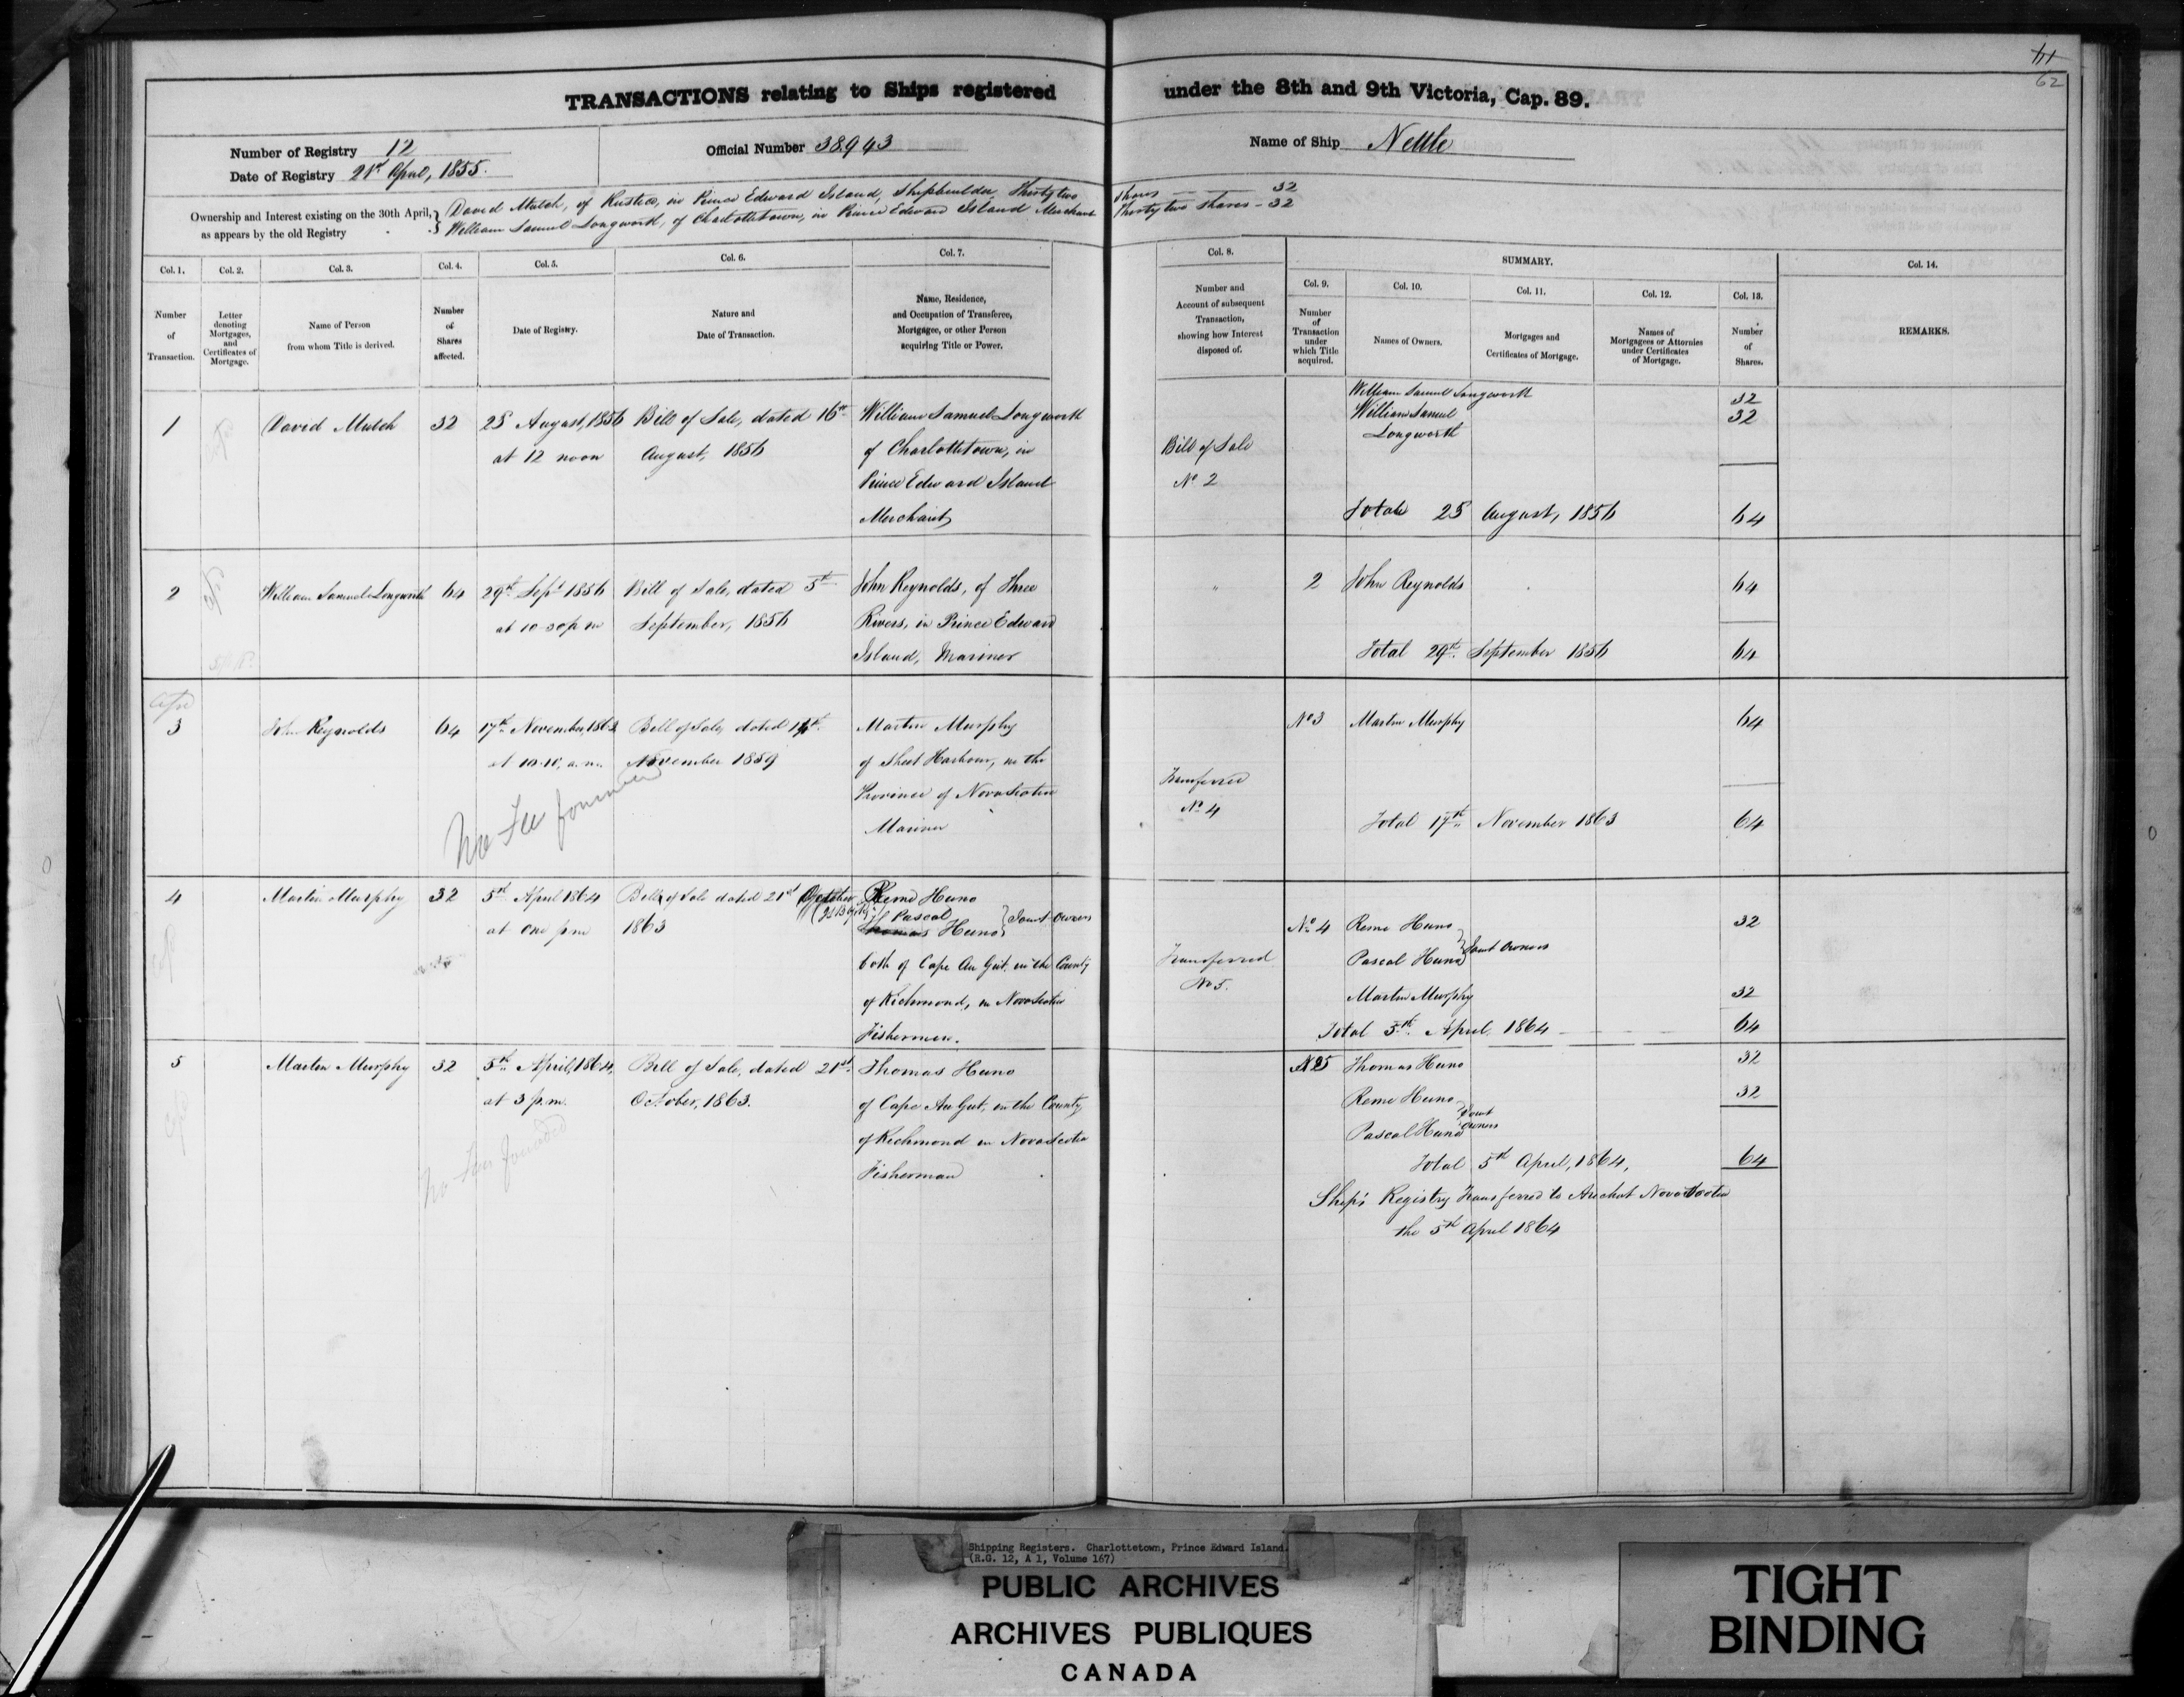 62
TRANSACTIONS relating to Ships registered under the 8th and 9th Victoria, Cap. 89.
Number of Registry 12
Date of Registry 21st April, 1855.
Official Number 38943
Name of Ship Nettle
Ownership and Interest existing on the 30th April, as appears by the old Registry
David Mutch, of Rustico, in Prince Edward Island, Shipbuilder, Thirty two Shares 32
William Samuel Longworth, of Charlottetown, in Prince Edward Island Merchant Thirty two shares - 32
Col. 1. Col. 2. Col. 3. Col. 4. Col. 5. Col. 6. Col. 7. Col. 8. SUMMARY. Col. 14.
Col. 9. Col. 10. Col. 11. Col. 12. Col. 13.
Number of Transaction.
Letter denoting Mortgages, and Certificates of Mortgage.
Name of Person from whom Title is derived.
Number of Shares affected.
Date of Registry.
Nature and Date of Transaction.
Name, Residence, and Occupation of Transferee, Mortgagee, or other Person acquiring Title or Power.
Number and Account of subsequent Transaction, showing how Interest disposed of.
Number of Transaction under which Title acquired.
Names of Owners.
Mortgages and Certificates of Mortgage.
Names of Mortgagees or Attornies under Certificates of Mortgage.
Number of Shares.
REMARKS.
1 David Mutch 32 25 August, 1856 Bill of Sale, dated 16th William Samuel Longworth
at 12 noon August, 1856 of Charlottetown, in
Prince Edward Island
Merchant
Bill of Sale
No 2
William Samuel Longworth 32
William Samuel 32
Longworth
Total 25 August, 1856 64
2 William Samuel Longworth 64 29th Sept 1856 Bill of Sale, dated 5th John Reynolds, of Three
at 10-30 p m September, 1856 Rivers, in Prince Edward
Island, Mariner
2 John Reynolds 64
Total 29th September 1856 64
3 John Reynolds 64 17th November, 1863 Bill of Sale, dated 14th Martin Murphy
at 10.10, a.m. November 1859 of Sheet Harbour, in the
Province of Nova Scotia
Mariner
No Fee
Transferred
No 4
No 3 Martin Murphy 64
Total 17th November 1863 64
4 Martin Murphy 32 5th April 1864 Bill of Sale dated 21st October Reme Huno
at one p m 1863 Pascal
Thomas Huno Joint Owners
both of Cape Au Gut, in the County
of Richmond, in Nova Scotia
Fishermen.
Transferred
No 5.
No 4 Reme Huno 32
Pascal Huno Joint Owners
Martin Murphy 32
Total 5th April 1864 64
5 Martin Murphy 32 5th April, 1864, Bill of Sale, dated 21st Thomas Huno
at 3 p.m. October, 1863. of Cape Au Gut, in the County
of Richmond in Nova Scotia
Fisherman
No Fee
No 5 Thomas Huno 32
Reme Huno 32
Pascal Huno Joint Owners
Total 5th April, 1864, 64
Ship's Registry Transferred to Arichat Nova Scotia
the 5th April 1864
Shipping Registers. Charlottetown, Prince Edward Island.
(R.G. 12, A 1, Volume 167)
PUBLIC ARCHIVES
ARCHIVES PUBLIQUES
CANADA
TIGHT
BINDING